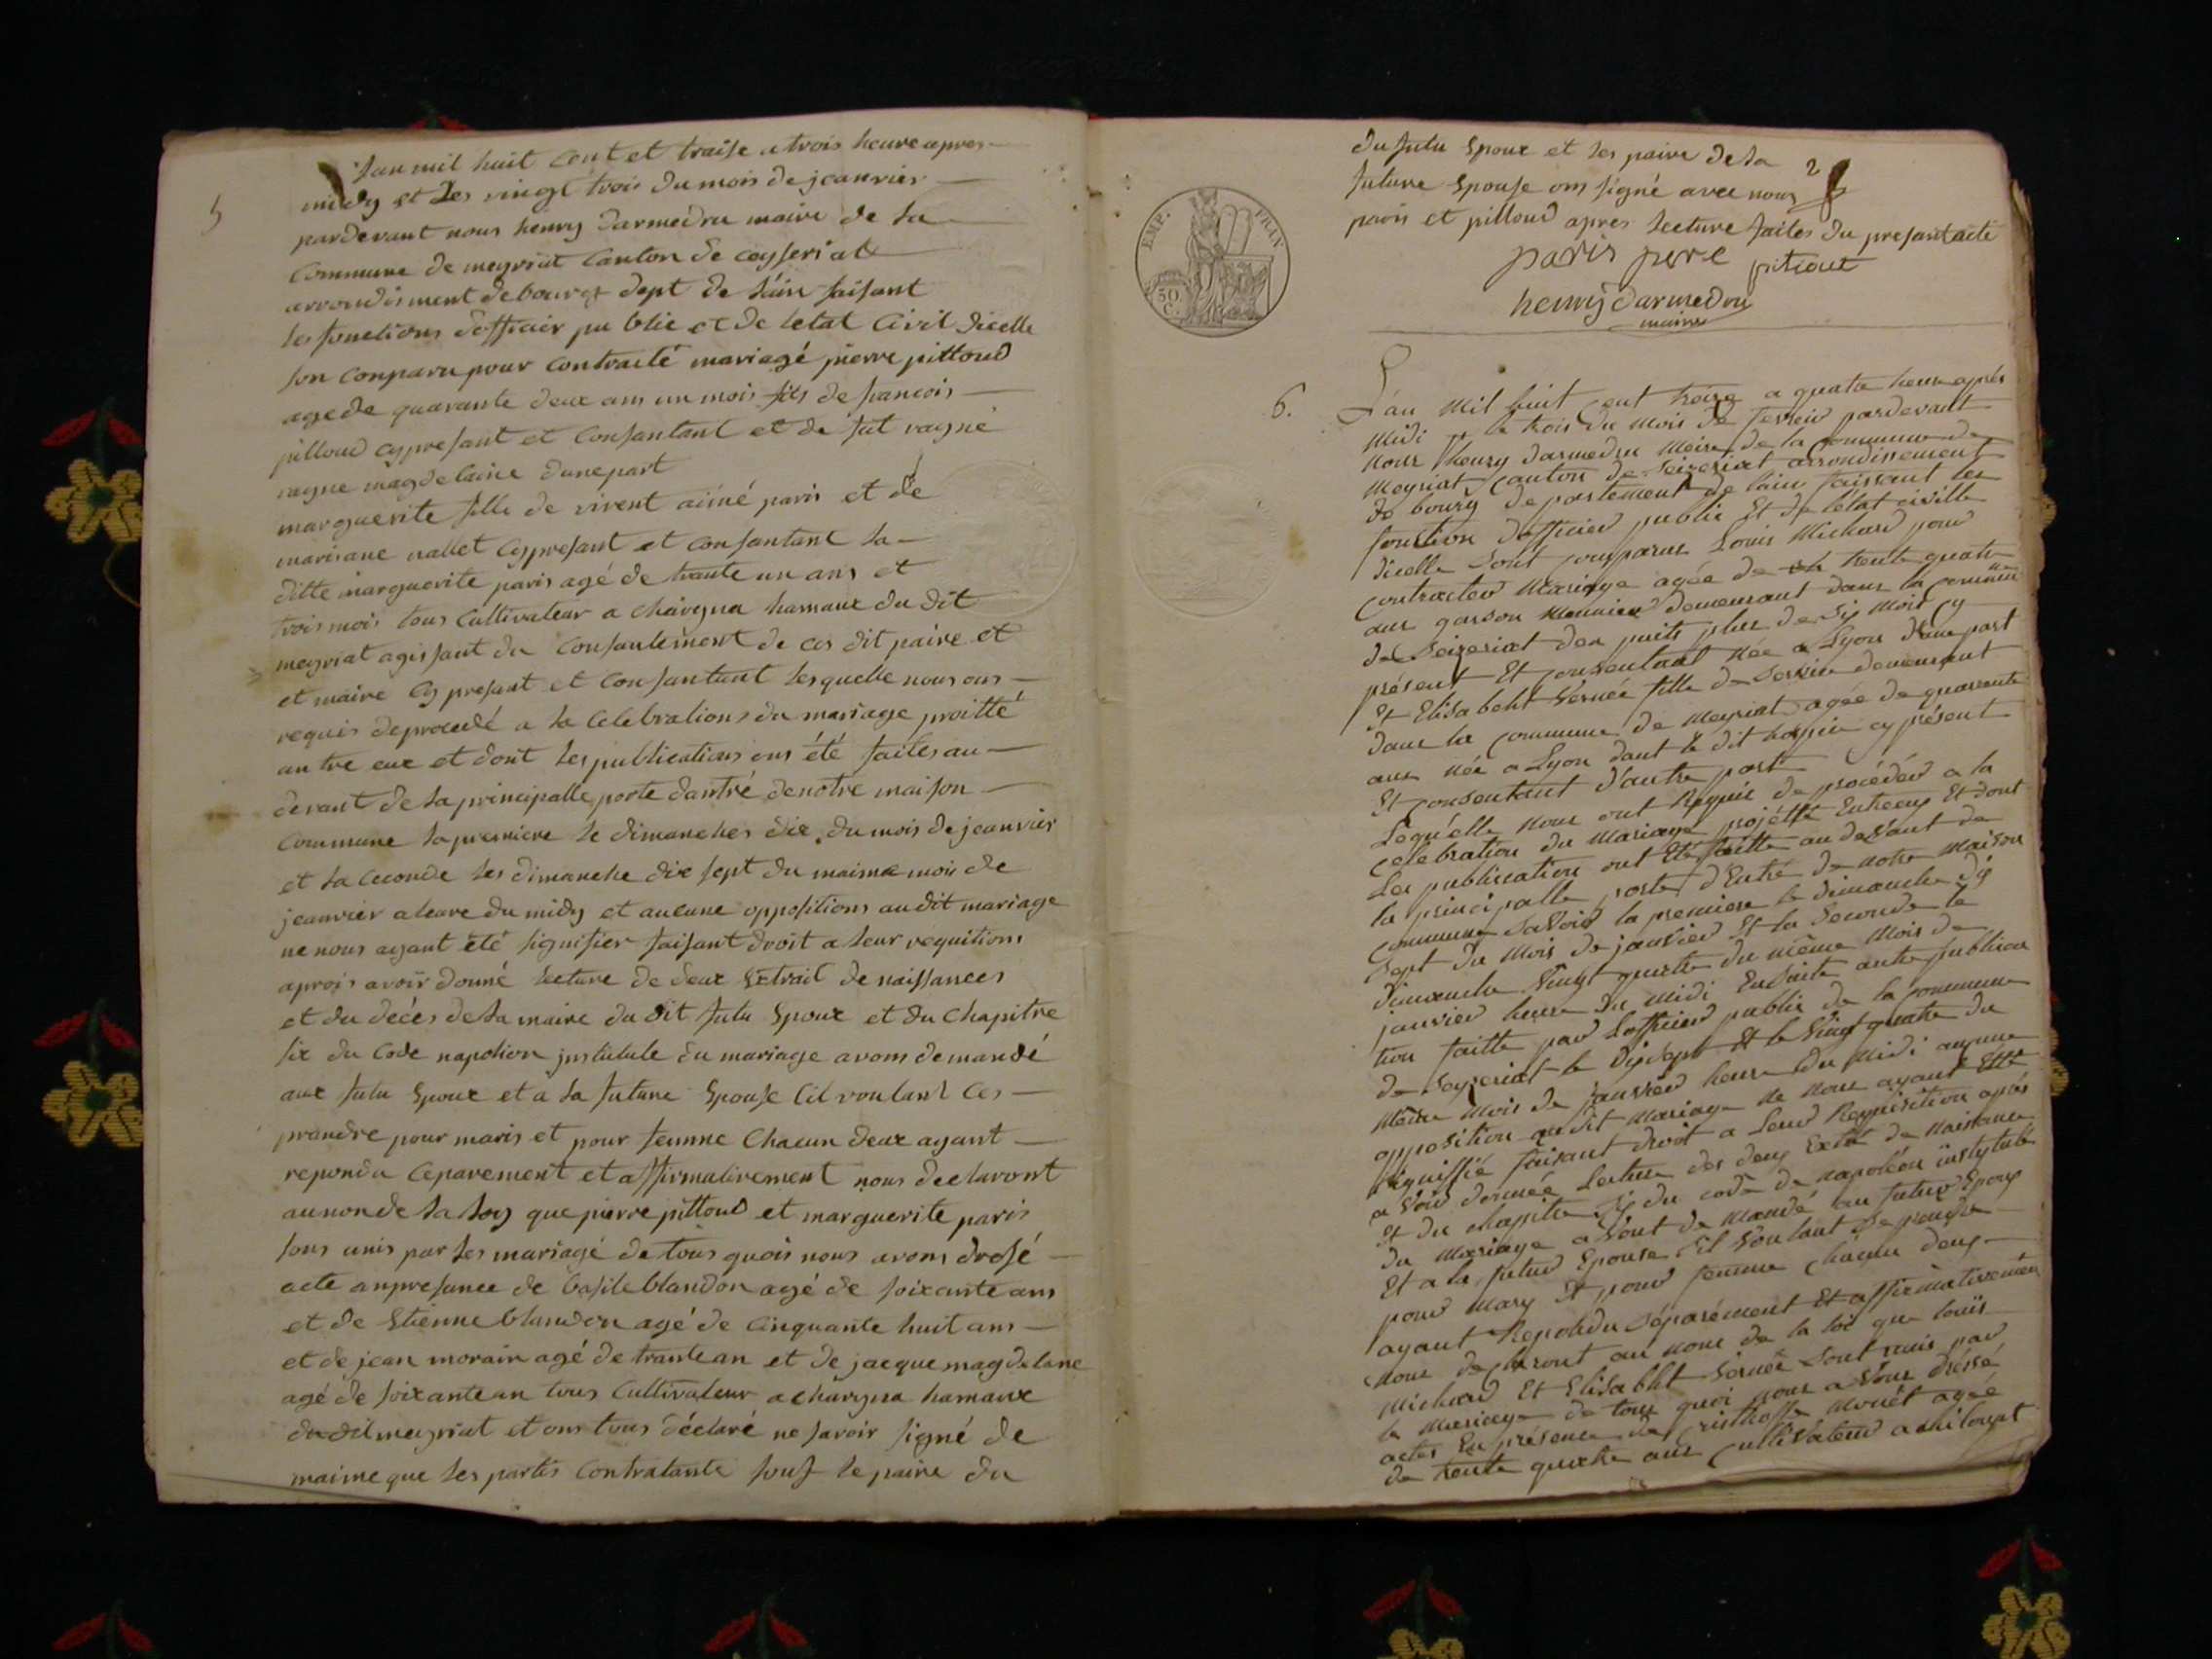 5
Lan mil huit cent et traise a trois heure apres
midy et Les vingt trois du mois de jeanvier
pardevant nous henry darmedru maire de la
Commune de meyriat Canton de ceyseriat
arrondisment de bourgt dept de l'áin faisant
les fonctions d'officier publie et de letat Civil dicelle
son conparu pour contracté mariagé pierre pittoud
age de quarante deux ans un mois fils de francois
pittoud cy presant et Consantant et de fut
magdelaine dune part
marguerite fille de vivent aimé paris et de
mariane nallet cy presant et consantant la
ditte marguerite paris agé de trante un ans et
trois mois tous Cultivateur a chavgna hamaux du dit
meyriat agissant du consantement de ces dit paire et
et maire cy presant et Consantant lesquelle nous ons
requis de procedé a la Celebrations du mariage proitté
antre eux et dont les publications ons été faites au
devant de la principalle porte dantré de notre maison
Commune la premiere le dimanches dix du mois de jeanvier
et la ceconde les dimanche dix sept du maime mois de
jeanvier a leure du midy et aucune oppositions au dit mariage
ne nous ayant été signifier faisant droit a leur requitions
aprois avoir donné lecture de deux Extrait de naissances
et du décés de la maire du dit futu Epoux et du Chapitre
six du Code napolion justitule du mariage avons demandé
aux futu Epoux et a la future Epouse Cil voulant Ces
prandre pour maris et pour femme Chacun deux ayant
repondu Ceparement et affirmativement nous declaront
au non de la loy que pierre pittoud et marguerite paris
sons unis par les mariagé de tous quois nous avons drosé
acte an presance de basile blandon agé de soixante ans
et de Etienne blandon agé de Cinquante huit ans
et de jean morain agé de trante an et de jacque magdelane
agé de soixante an tous Cultivateur a chavgna hamaux
du dit meyriat et ons tous déclaré ne savoir signé de
maime que les partis Contratante souf le paire du
du futu Epoux et les paire de la
future Epouse ons signé avec nous
paris et pittoud apres lecture faites du presant acte
2
paris pere
henry darmedru
maire
EMP. FRAN
50 C.
6.
L'an Mil huit Cent treize a quatre heure après
Midi le trois du Mois de fevrier pardevant
Nous henry darmedru Maire de la Commune de
Meyriat Canton de Seizeriat arrondissement
de bourg departement de lain faissant les
fonction d'officier publie Et de létat civille
dicelle Sont Comparus Louis Michard pour
Contracter Mariage agée de trente quatre
ans garson Meunier demeurant dans la Commune
de Seizeriat depuits plus de Six Mois cy
présent Et Consentant Née a Lyon d'une part
Et Elisabeht Vernée fille de Service demeurant
dans la Commune de Meyriat agée de quarante
ans Née a Lyon dant le dit hospice cy présent
Et Consentant d'autre part
Lequ'elle Nous ont Requis de procédér a la
Celebration du Mariage projétté Entreux Et dont
Les publication ont Eté faitte au devant de
la principalle porte d'Entré de notre Maison
Commune Savoir la premiere le Dimanche dix
Sept du Mois de janvier Et la Seconde le
dimanche Vingt quatre du même Mois de
janvier heure du Midi Ensuite autre publica
tion faitte par Lofficier public de la Commune
de Seyzeriat le Dix Sept Et le Vingt quatre du
Même Mois de janvier heure du Midi aucune
opposition au dit Mariage Ne Nous ayant Etté
Signiffié faisant droit a Leur Requisition après
a Voir donnée Lecture des deux Extrait de Naissance
Et du Chapitre Six du code de Napoléon instytulé
du Mariage a Vont de Mandé au futur Epoux
Et a la futur Epouse Sil Voulant Se prendre
pour Mary Et pour femme Chacun deux
ayant Repondu Séparément Et affirmativement
Nous declaront au Nom de la loi que Louis
Michard Et Elisabht Vernée Sont unis par
le Mariage de tous quoi Nous a Vons dréssé
actes En présence de Cristhoffe Mouét agée
de trente quatre ans Cultivateur a